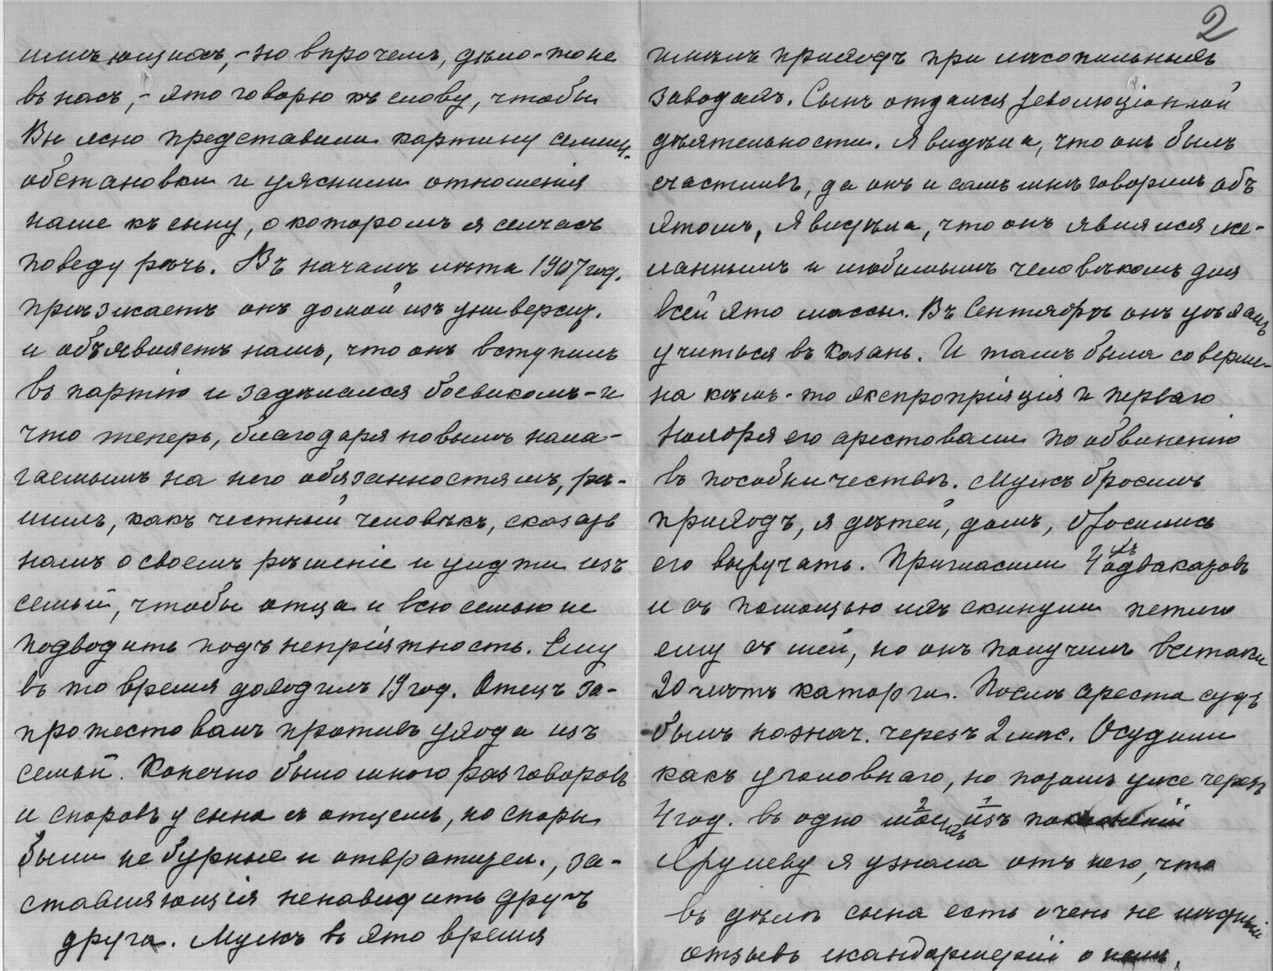 имѣющихъ, - но впрочемъ, дѣло-то не
въ насъ, - это говорю къ слову, чтобы
Вы ясно представили картину семейн.
обстановки и уяснили отношенія
наше къ сыну, о которомъ я сейчасъ
поведу рѣчь. Въ началѣ лѣта 1907 год.
пріѣзжаетъ онъ домой изъ универси.
и объявляетъ намъ, что онъ вступилъ
въ партію и задѣлался боевикомъ - и
что теперь, благодаря новымъ нала-
гаемымъ на него обязанностямъ, рѣ-
шилъ, какъ честный человѣкъ, сказать
намъ о своемъ рѣшеніе и уйдти изъ
семьи, чтобы отца и всю семью не
подводить подъ непріятность. Ему
въ то время доходилъ 19 год. Отецъ за-
протестовалъ противъ ухода изъ
семьи. Конечно было много разговоровъ
и споровъ у сына съ отцемъ, но споры
были не бурные и отвратител., за-
ставляющія ненавидить другъ
друга. Мужъ въ это время
2
имѣлъ приходъ при лѣсопильныхъ
заводахъ. Сынъ отдался революціонной
дѣятельности. Я видѣла, что онъ былъ
счастливъ, да онъ и самъ мнѣ говорилъ объ
этомъ, я видѣла, что онъ являлся же-
ланнымъ и любимымъ человѣкомъ для
всей это массы. Въ Сентябрѣ онъ уѣхалъ
учиться въ Казань. И тамъ была соверше-
на кѣмъ-то экспропріяція и перваго
Ноября его арестовали по обвиненію
въ пособничествѣ. Мужъ бросилъ
приходъ, я дѣтей, домъ, бросились
его выручать. Пригласили 4хъ адвакатовъ
и съ помощью ихъ скинули петлю
ему съ шеи, но онъ получилъ всетаки
20 лѣтъ каторги. Послѣ ареста судъ
былъ назнач. черезъ 2 мѣс. Осудили
какъ уголовнаго, но потомъ уже черезъ
4 год. въ одно 2 моихъ 1 изъ
я узнала отъ него, что
въ дѣлѣ сына есть очень не
отзывъ жандармеріи о немъ,